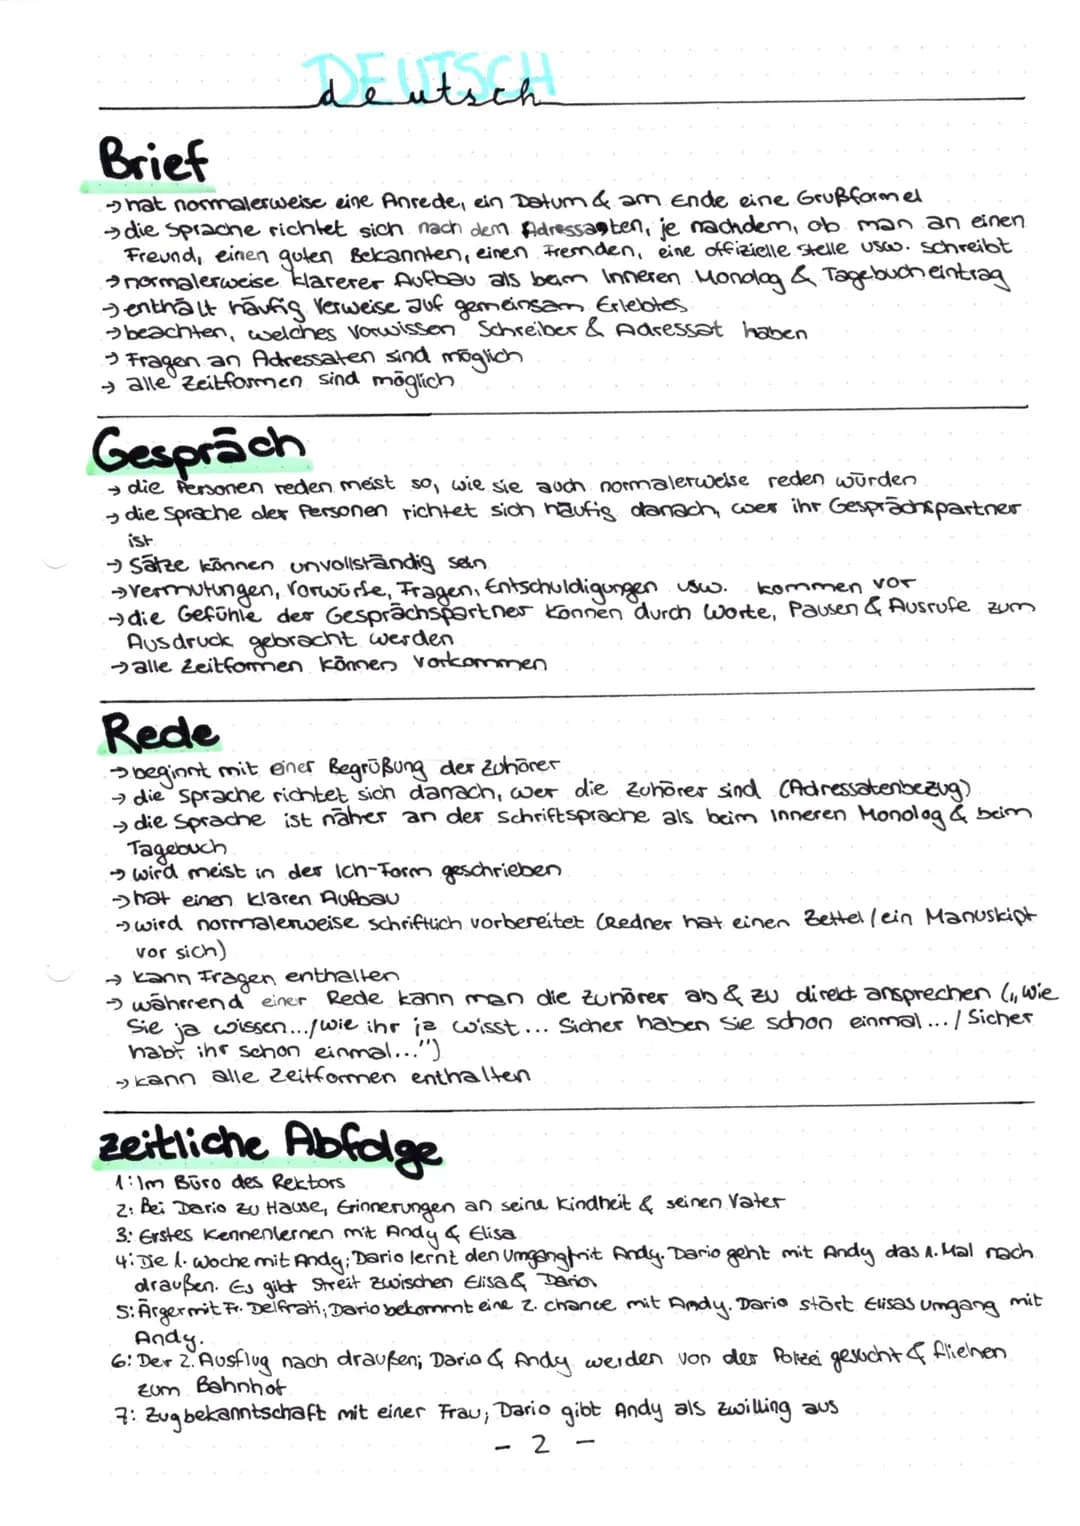 DEUTSCH
deutsch
Brief
→ hat normalerweise eine Anrede, ein Datum & am Ende eine Grußformel
→ die Sprache richtet sich nach dem Adressaten, je nachdem, ob man an einen
Freund, einen guten Bekannten, einen Fremden, eine offizielle Stelle usw. schreibt
→ normalerweise klarerer Aufbau als beim Inneren Monolog & Tagebucheintrag
→ enthält häufig Verweise auf gemeinsam Erlebtes
→ beachten, welches Vorwissen Schreiber & Adressat haben
→ Fragen an Adressaten sind möglich
→ alle Zeitformen sind möglich
Gespräch
→ die Personen reden meist so, wie sie auch normalerweise reden würden
→ die Sprache der Personen richtet sich häufig danach, wer ihr Gesprächspartner
ist
→ Sätze können unvollständig sein
→ Vermutungen, Vorwürfe, Fragen, Entschuldigungen usw. kommen vor
→ die Gefühle der Gesprächspartner können durch Worte, Pausen & Ausrufe zum
Ausdruck gebracht werden
→ alle Zeitformen können vorkommen
Rede
→ beginnt mit einer Begrüßung der Zuhörer
→ die Sprache richtet sich danach, wer die Zuhörer sind (Adressatenbezug)
→ die Sprache ist näher an der Schriftsprache als beim Inneren Monolog & beim
Tagebuch
→ wird meist in der Ich-Form geschrieben
→ hat einen klaren Aufbau
→ wird normalerweise schriftlich vorbereitet (Redner hat einen Zettel / ein Manuskipt
vor sich)
→ kann Fragen enthalten
→ währrend einer Rede kann man die Zuhörer ab & zu direkt ansprechen („Wie
Sie ja wissen.../Wie ihr ja wisst... Sicher haben Sie schon einmal... / Sicher
habt ihr schon einmal...")
→ kann alle Zeitformen enthalten
zeitliche Abfolge
1: Im Büro des Rektors
2: Bei Dario zu Hause, Erinnerungen an seine Kindheit & seinen Vater
3: Erstes Kennenlernen mit Andy & Elisa
4: Die 1. Woche mit Andy; Dario lernt den Umgang mit Andy. Dario geht mit Andy das 1. Mal nach
draußen. Es gibt Streit zwischen Elisa & Dario
5: Ärger mit Fr. Delfrati; Dario bekommt eine 2. chance mit Andy. Dario stört Elisas Umgang mit
Andy.
6: Der 2. Ausflug nach draußen; Dario & Andy werden von der Polizei gesucht & fliehen
zum Bahnhof
7: Zugbekanntschaft mit einer Frau; Dario gibt Andy als Zwilling aus
- 2 -